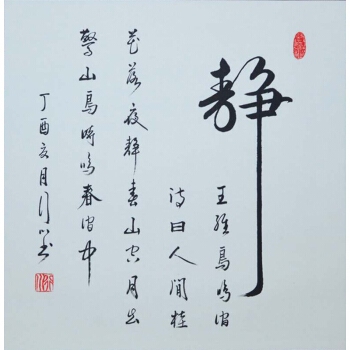 靜
王維鳥鳴澗
詩曰人閒桂
花落夜靜春山空月出
驚山鳥時鳴春澗中
丁酉亥月